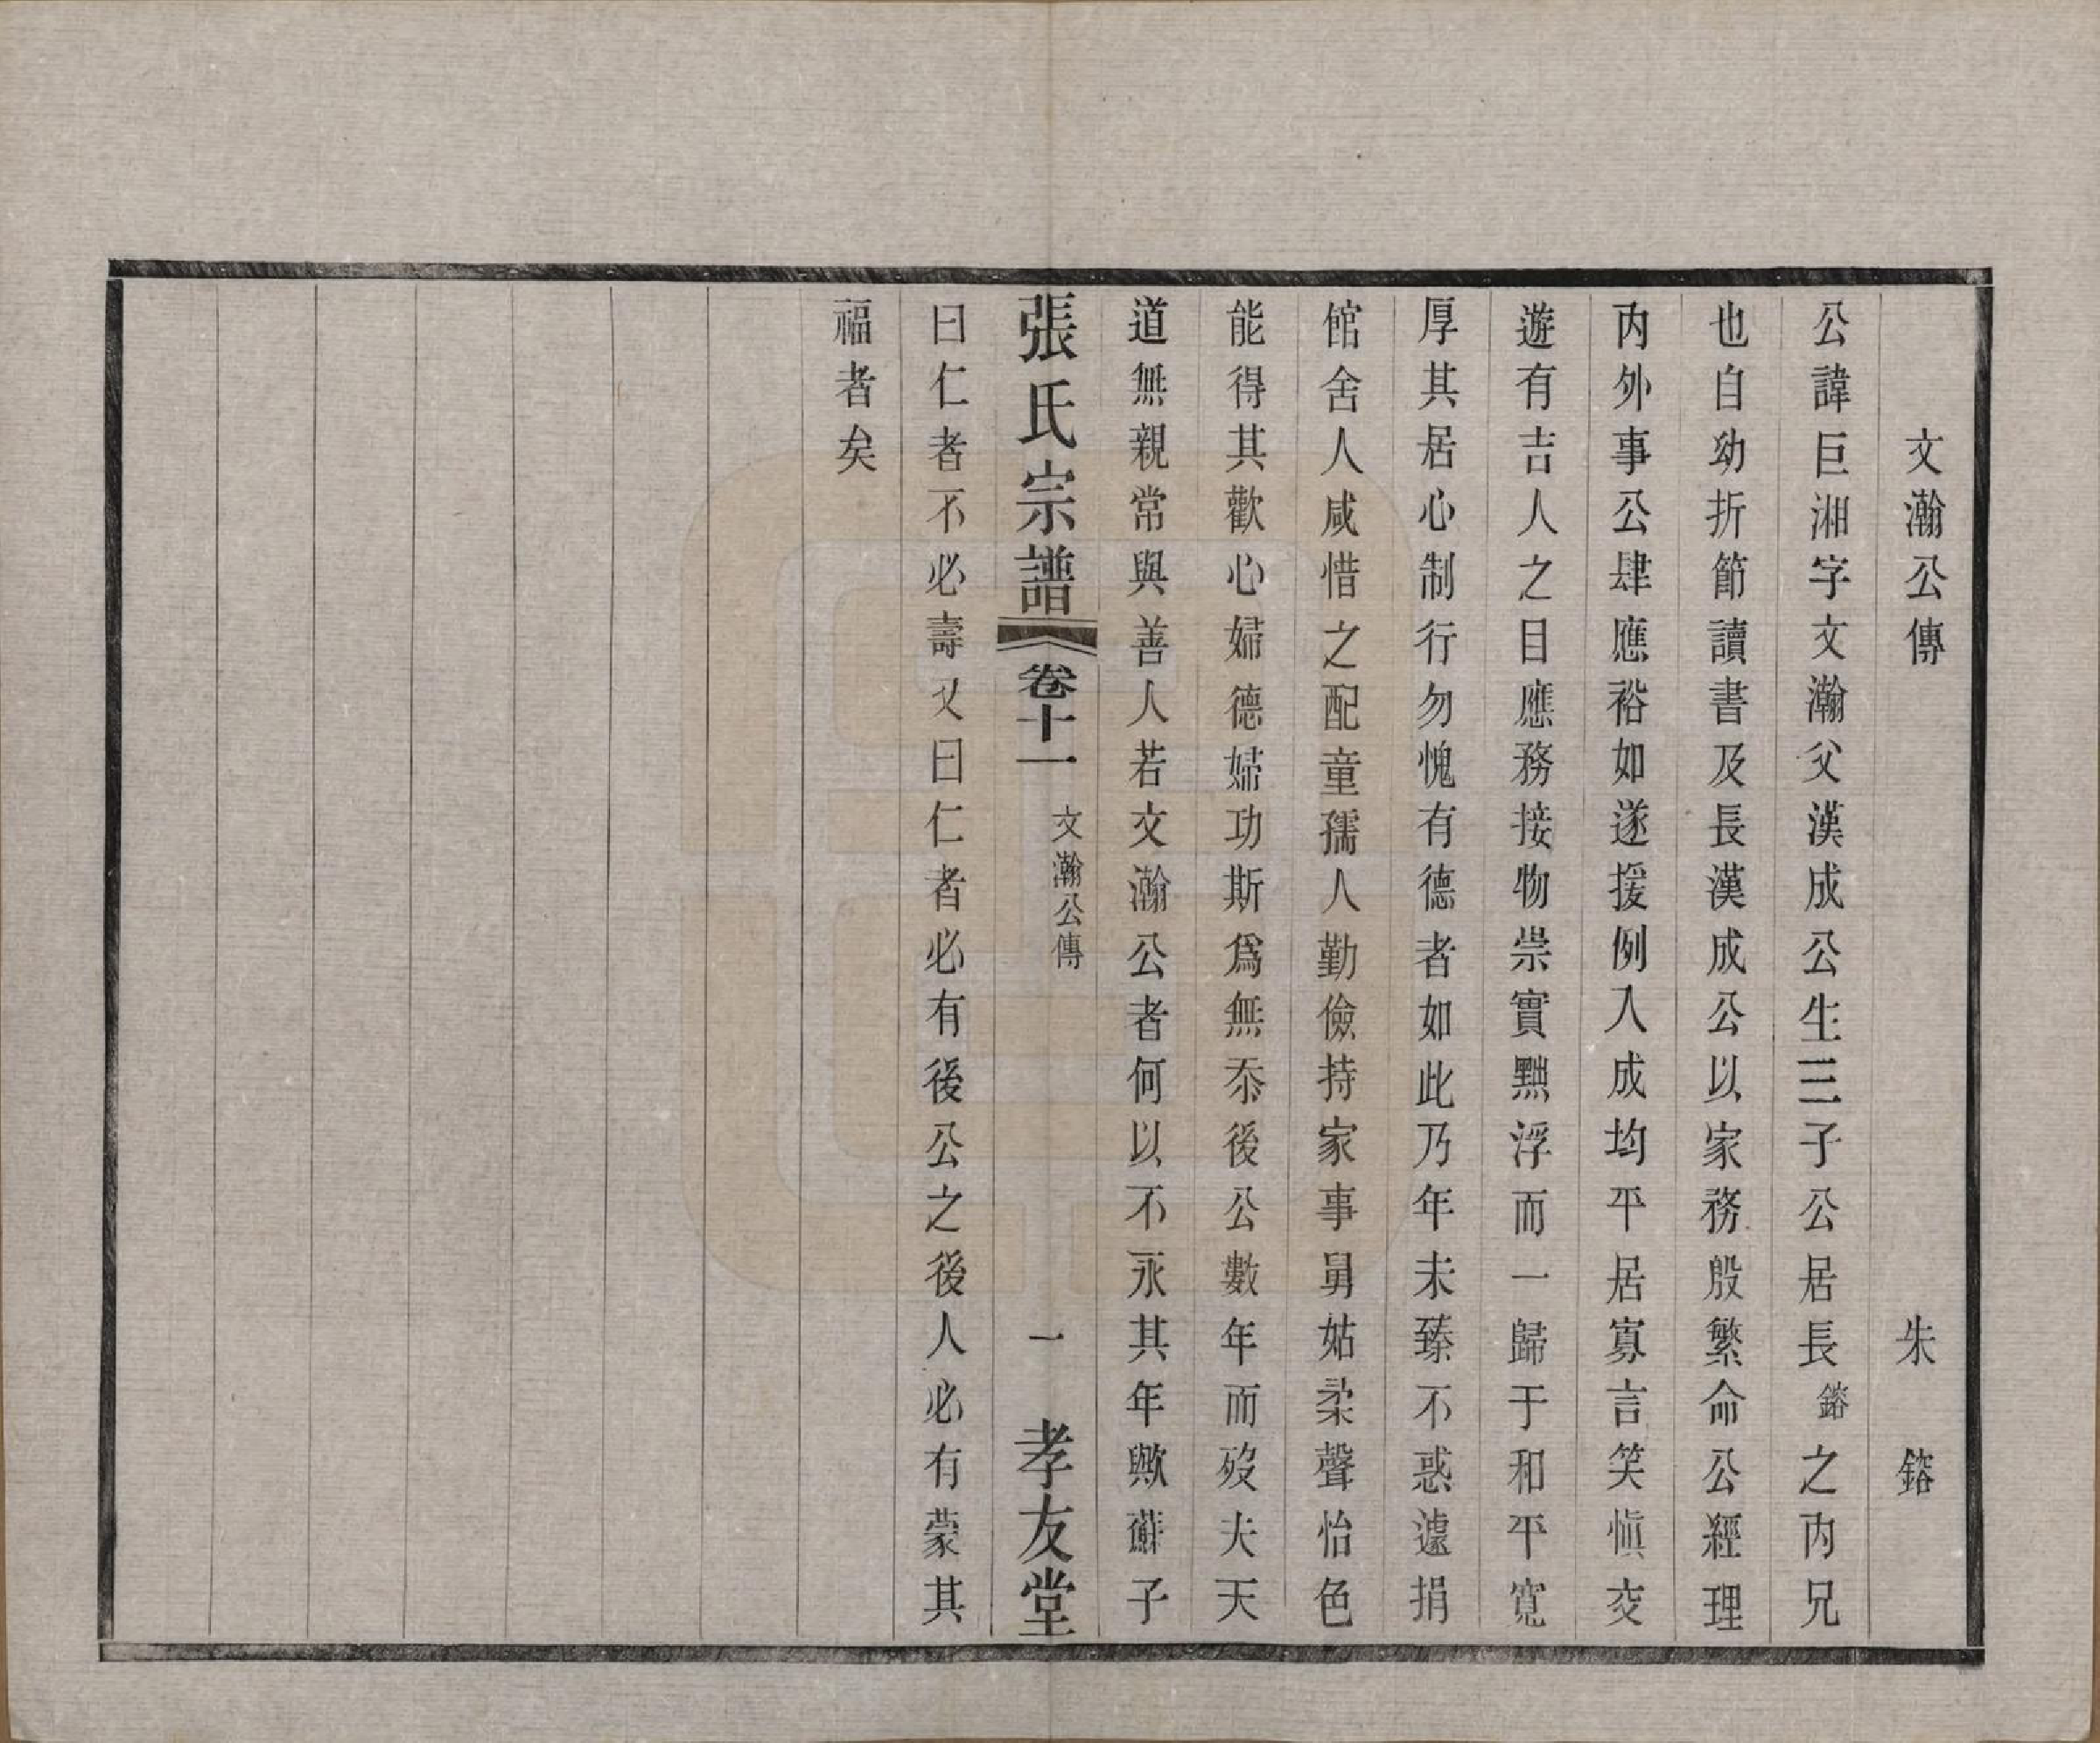 文瀚公傳 朱鎔
公諱巨湘字文瀚父漢成公生三子公居長鎔之內兄
也自幼折節讀書及長漢成公以家務殷繁命公經理
內外事公肆應裕如遂援例入成均平居寡言笑愼交
遊有吉人之目應務接物崇實黜浮而一歸于和平寬
厚其居心制行勿愧有德者如此乃年未臻不惑遽捐
館舍人咸惜之配童孺人勤儉持家事舅姑柔聲怡色
能得其歡心婦德婦功斯爲無忝後公數年而歿夫天
道無親常與善人若文瀚公者何以不永其年歟蘇子
張氏宗譜 卷十一 文瀚公傳 一 孝友堂
曰仁者不必壽又曰仁者必有後公之後人必有蒙其
福者矣